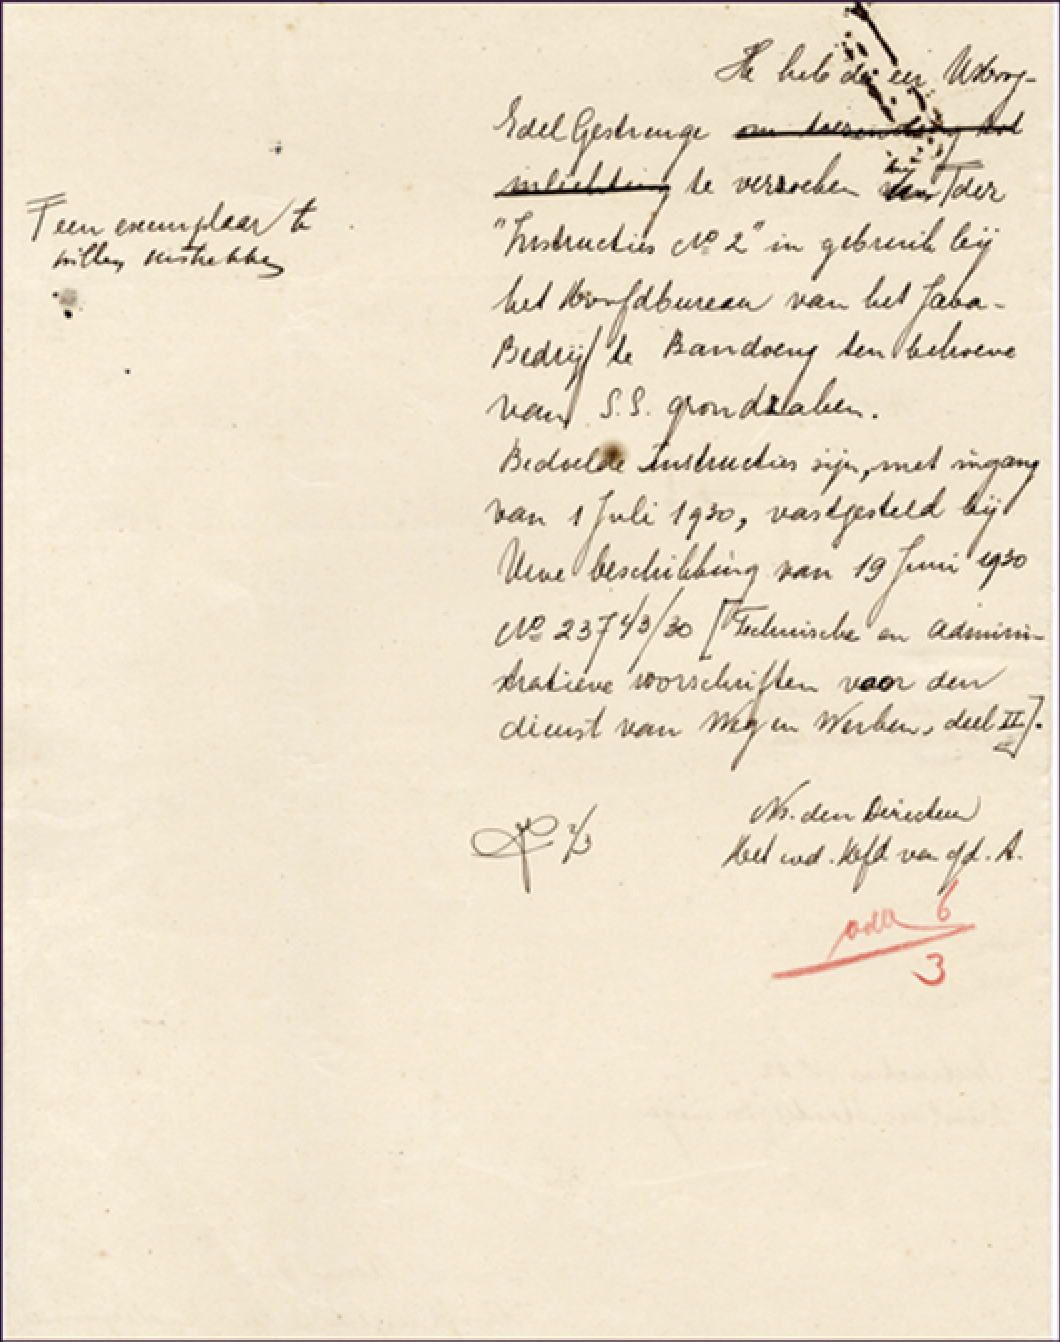 Ik heb de eer UHoog-
EdelGestrenge om toezending tot
inlichting te verzoeken mij van der
F een exemplaar te
willen verstrekken
"Instructies No 2" in gebruik bij
het Hoofdbureau van het Java-
Bedrijf te Bandoeng ten behoeve
van S.S. grondzaken.
Bedoelde Instructies zijn, met ingang
van 1 Juli 1930, vastgesteld bij
Uwe beschikking van 19 Juni 1930
No 2374/3/30 [Technische en Admini-
stratieve voorschriften voor den
dienst van Weg en Werken, deel II].
Ns. den Directeur
Het wd. Hfd van afd. A.
2/3
6
3